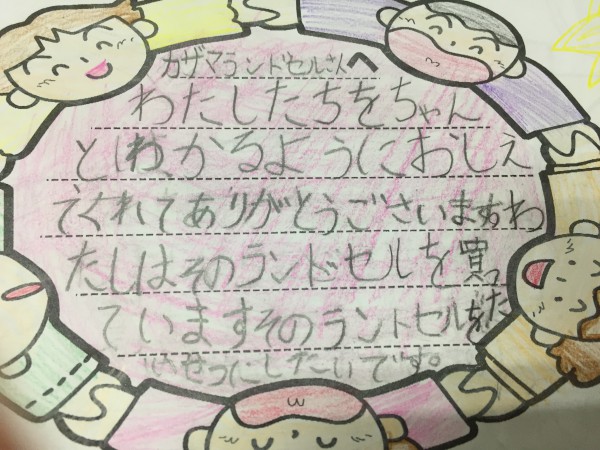 カザマランドセルさんへ
わたしたちをちゃん
とわかるようにおしえ
てくれてありがとうございますわ
たしはそのランドセルを買っ
ていますそのランドセルをだ
いせつにしたいです。